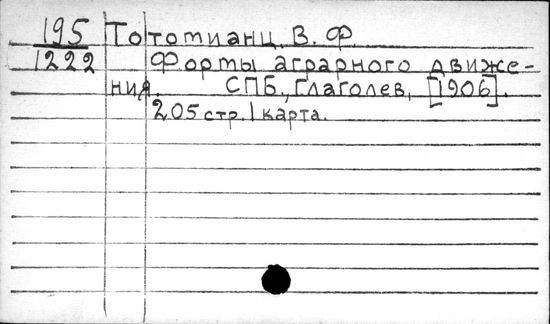 195 Тотомианц. В. Ф.
1222 Форты аграрного движе-
ния. СПБ., Глаголев, [1906].
205 стр. 1 карта.